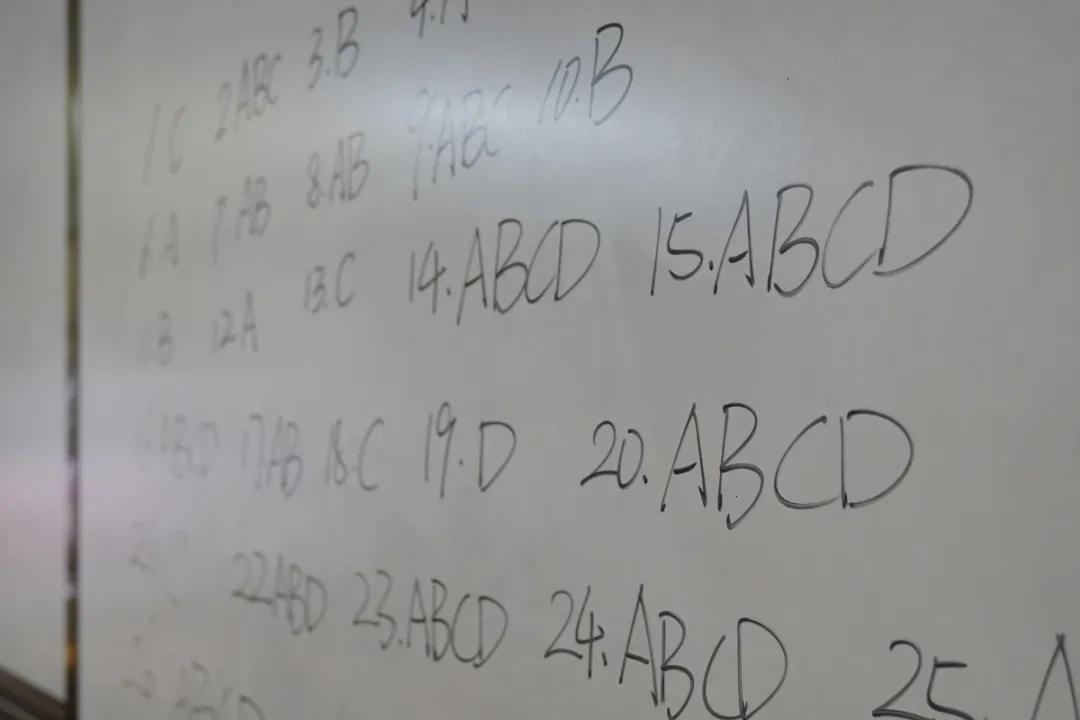 1 C 2 ABC 3. B 4. A
6 A 7. AB 8. AB 9. ABC 10. B
11 B 12 A 13. C 14. ABCD 15. ABCD
ABD 17 AB 18. C 19. D 20. ABCD
21 C 22 ABD 23. ABCD 24. ABCD 25. A